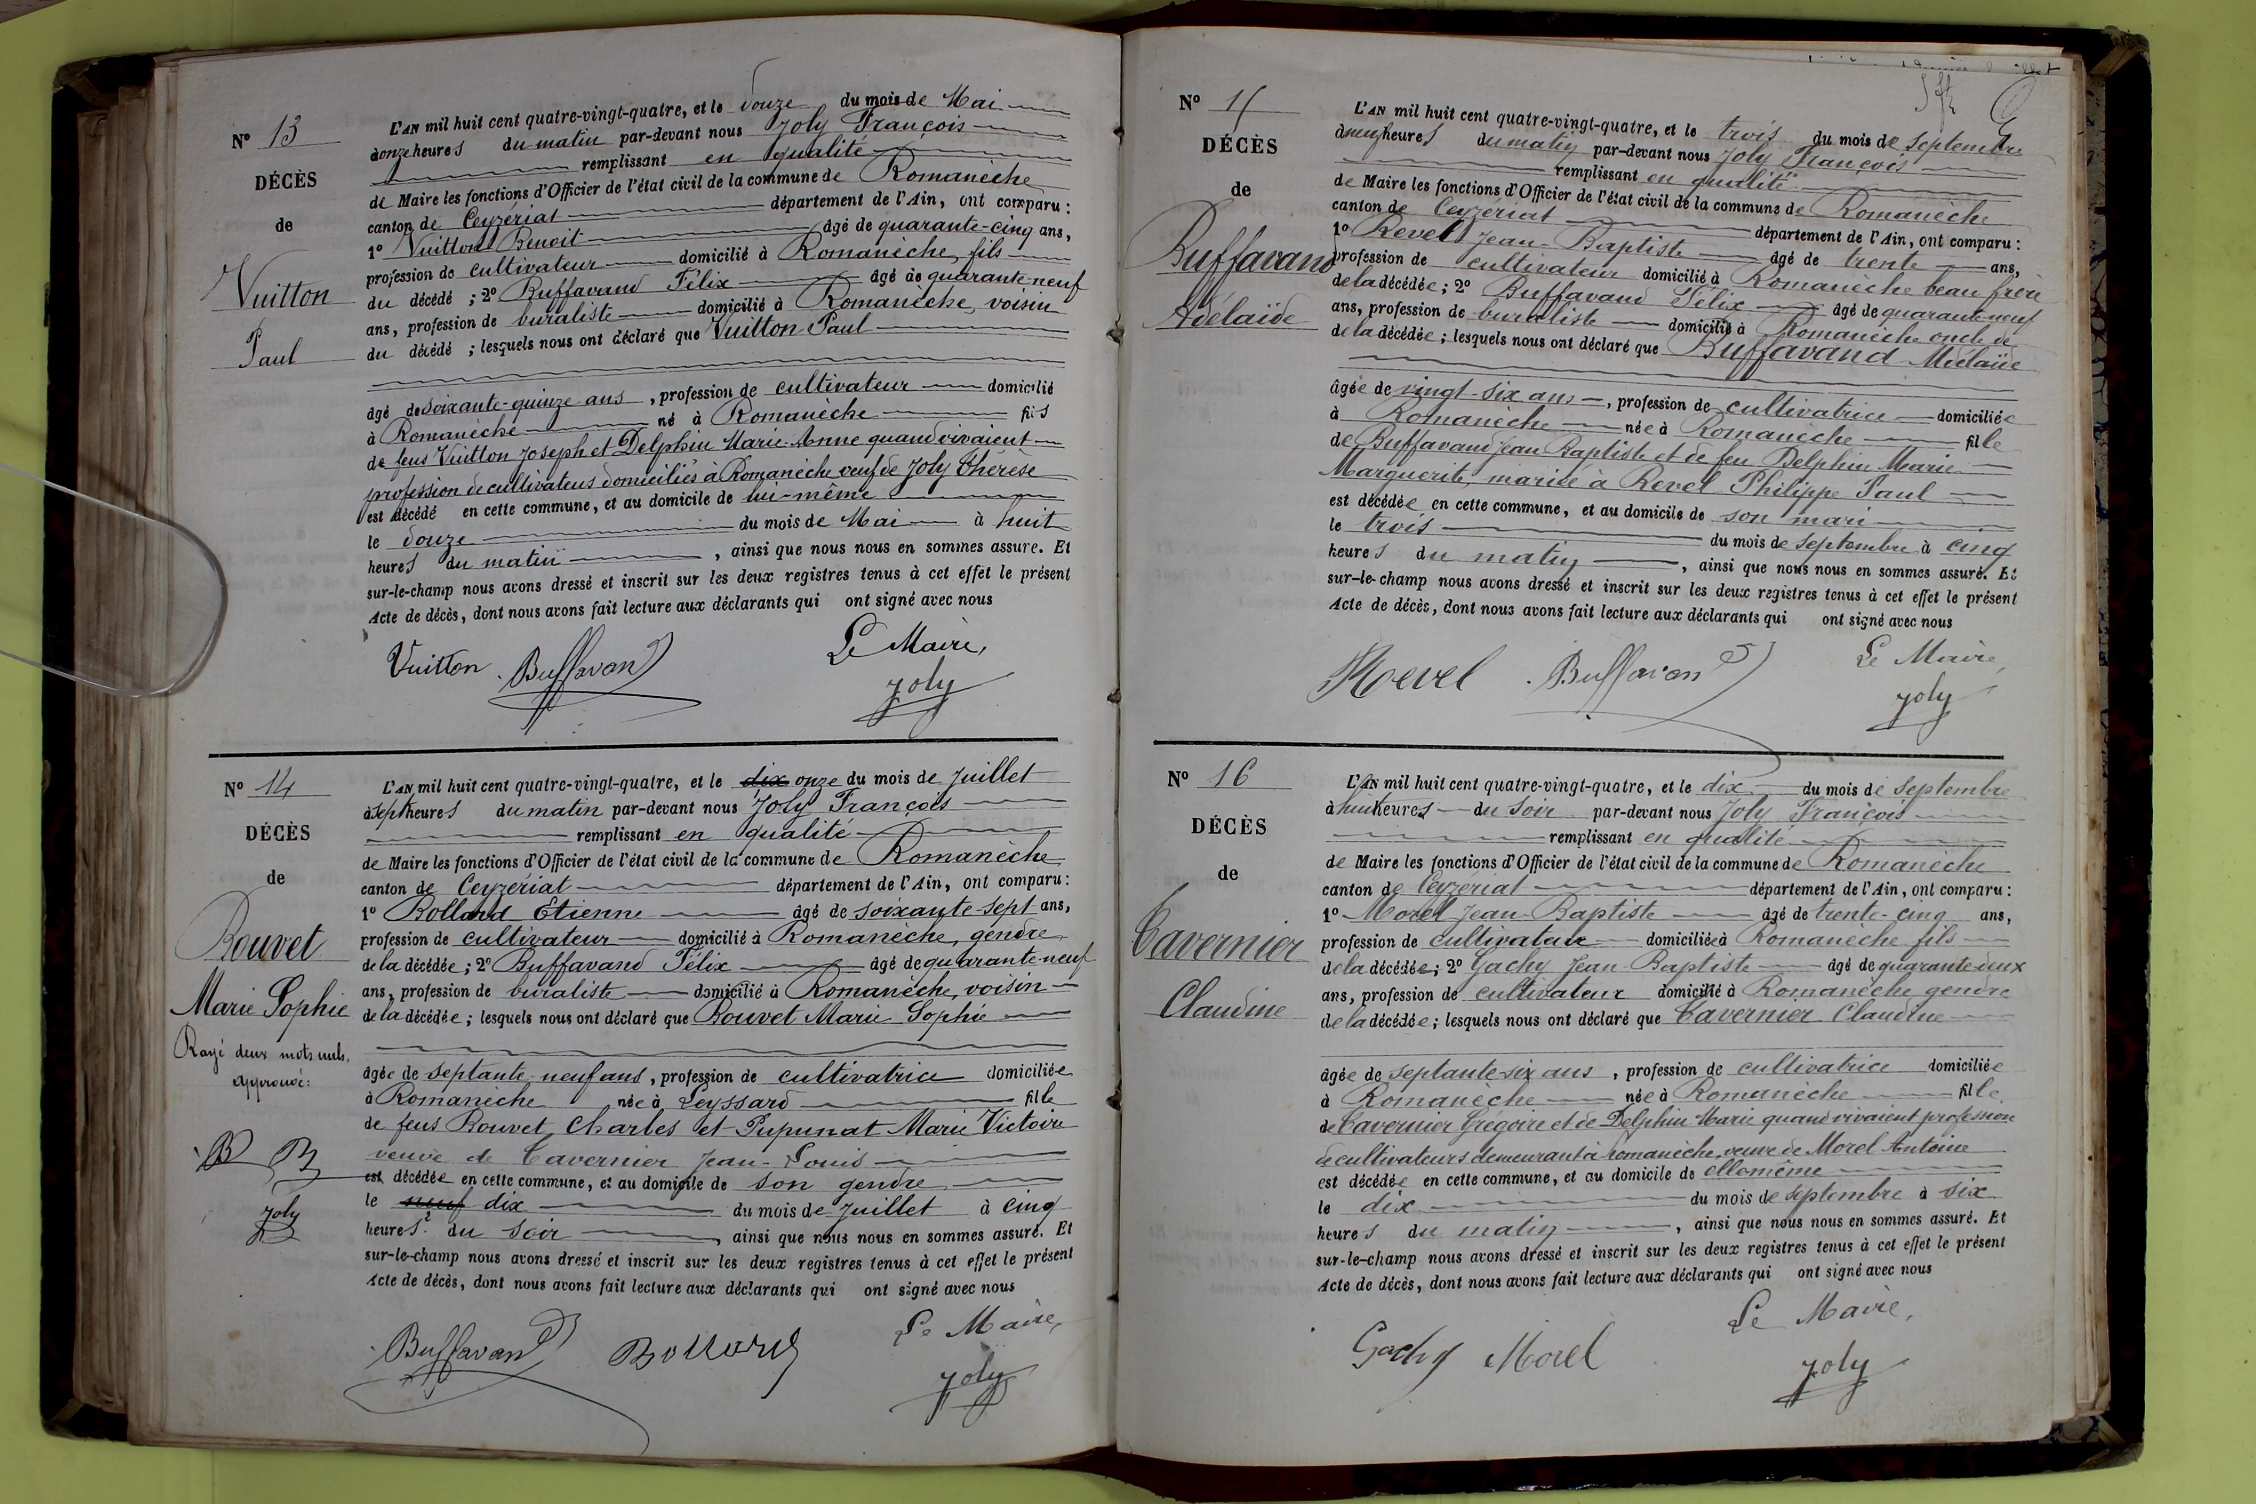 N° 13
DÉCÈS
de
Vuitton
Paul
L'AN mil huit cent quatre-vingt-quatre, et le douze du mois de Mai
à onze heures du matin par-devant nous Joly François
remplissant en qualité
de Maire les fonctions d'Officier de l'état civil de la commune de Romanèche
canton de Ceyzériat département de l'Ain, ont comparu :
1° Vuitton Benoit âgé de quarante-cinq ans,
profession de cultivateur domicilié à Romanèche, fils
du décédé ; 2° Buffavand Félix âgé de quarante-neuf
ans, profession de buraliste domicilié à Romanèche, voisin
du décédé ; lesquels nous ont déclaré que Vuitton Paul
âgé de soixante-quinze ans, profession de cultivateur domicilié
à Romanèche né à Romanèche fils
de feus Vuitton Joseph et Delphin Marie-Anne quand vivaient
profession de cultivateurs domiciliés à Romanèche veuf de Joly Thérèse
est décédé en cette commune, et au domicile de lui-même
le douze du mois de Mai à huit
heures du matin, ainsi que nous nous en sommes assuré. Et
sur-le-champ nous avons dressé et inscrit sur les deux registres tenus à cet effet le présent
Acte de décès, dont nous avons fait lecture aux déclarants qui ont signé avec nous
Le Maire,
Vuitton Buffavand Joly
N° 14
DÉCÈS
de
Rouvet
Marie Sophie
Rayé deux mots nuls.
approuvé :
B B
Joly
L'AN mil huit cent quatre-vingt-quatre, et le dix onze du mois de Juillet
à sept heures du matin par-devant nous Joly François
remplissant en qualité
de Maire les fonctions d'Officier de l'état civil de la commune de Romanèche
canton de Ceyzériat département de l'Ain, ont comparu :
1° Bollard Etienne âgé de soixante-sept ans,
profession de cultivateur domicilié à Romanèche, gendre
de la décédée ; 2° Buffavand Félix âgé de quarante-neuf
ans, profession de buraliste domicilié à Romanèche, voisin
de la décédée ; lesquels nous ont déclaré que Rouvet Marie Sophie
âgée de septante-neuf ans, profession de cultivatrice domiciliée
à Romanèche née à Leyssard fille
de feus Rouvet Charles et Pupunat Marie Victoire
veuve de Tavernier Jean-Louis
est décédée en cette commune, et au domicile de son gendre
le neuf dix du mois de Juillet à cinq
heures du soir, ainsi que nous nous en sommes assuré. Et
sur-le-champ nous avons dressé et inscrit sur les deux registres tenus à cet effet le présent
Acte de décès, dont nous avons fait lecture aux déclarants qui ont signé avec nous
Le Maire,
Buffavand Bollard Joly
N° 15
DÉCÈS
de
Buffavand
Adélaïde
L'AN mil huit cent quatre-vingt-quatre, et le trois du mois de Septembre
à neuf heures du matin par-devant nous Joly François
remplissant en qualité
de Maire les fonctions d'Officier de l'état civil de la commune de Romanèche
canton de Ceyzériat département de l'Ain, ont comparu :
1° Revel Jean-Baptiste âgé de trente ans,
profession de cultivateur domicilié à Romanèche beau frère
de la décédée ; 2° Buffavand Félix âgé de quarante-neuf
ans, profession de buraliste domicilié à Romanèche oncle de
de la décédée ; lesquels nous ont déclaré que Buffavand Adélaïde
âgée de vingt-six ans, profession de cultivatrice domiciliée
à Romanèche née à Romanèche fille
de Buffavand Jean Baptiste et de feu Delphin Marie
Marguerite, mariée à Revel Philippe Paul
est décédée en cette commune, et au domicile de son mari
le trois du mois de Septembre à cinq
heures du matin, ainsi que nous nous en sommes assuré. Et
sur-le-champ nous avons dressé et inscrit sur les deux registres tenus à cet effet le présent
Acte de décès, dont nous avons fait lecture aux déclarants qui ont signé avec nous
Le Maire,
Revel Buffavand Joly
N° 16
DÉCÈS
de
Tavernier
Claudine
L'AN mil huit cent quatre-vingt-quatre, et le dix du mois de Septembre
à huit heures du soir par-devant nous Joly François
remplissant en qualité
de Maire les fonctions d'Officier de l'état civil de la commune de Romanèche
canton de Ceyzériat département de l'Ain, ont comparu :
1° Morel Jean-Baptiste âgé de trente-cinq ans,
profession de cultivateur domicilié à Romanèche fils
de la décédée ; 2° Gachy Jean Baptiste âgé de quarante-deux
ans, profession de cultivateur domicilié à Romanèche gendre
de la décédée ; lesquels nous ont déclaré que Tavernier Claudine
âgée de septante-six ans, profession de cultivatrice domiciliée
à Romanèche née à Romanèche fille
de Tavernier Grégoire et de Delphin Marie quand vivaient profession
de cultivateurs demeurant à Romanèche, veuve de Morel Antoine
est décédée en cette commune, et au domicile de ellemême
le dix du mois de Septembre à six
heures du matin, ainsi que nous nous en sommes assuré. Et
sur-le-champ nous avons dressé et inscrit sur les deux registres tenus à cet effet le présent
Acte de décès, dont nous avons fait lecture aux déclarants qui ont signé avec nous
Le Maire,
Gachy Morel Joly